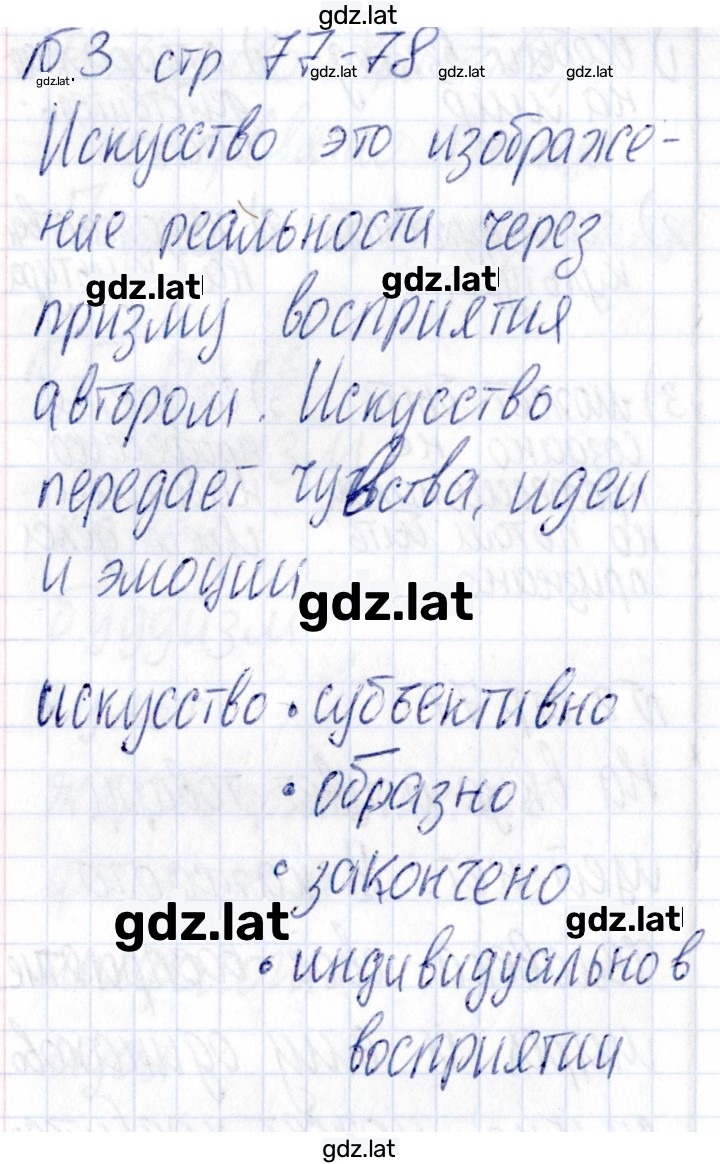 gdz.lat
№3 стр 77-78
gdz.lat gdz.lat gdz.lat gdz.lat
Искусство это изображе-
ние реальности через
gdz.lat gdz.lat
призму восприятия
автором. Искусство
передает чувства, идеи
и эмоции
gdz.lat
искусство • субъективно
• образно
• закончено
gdz.lat gdz.lat
• индивидуально в
восприятии
gdz.lat